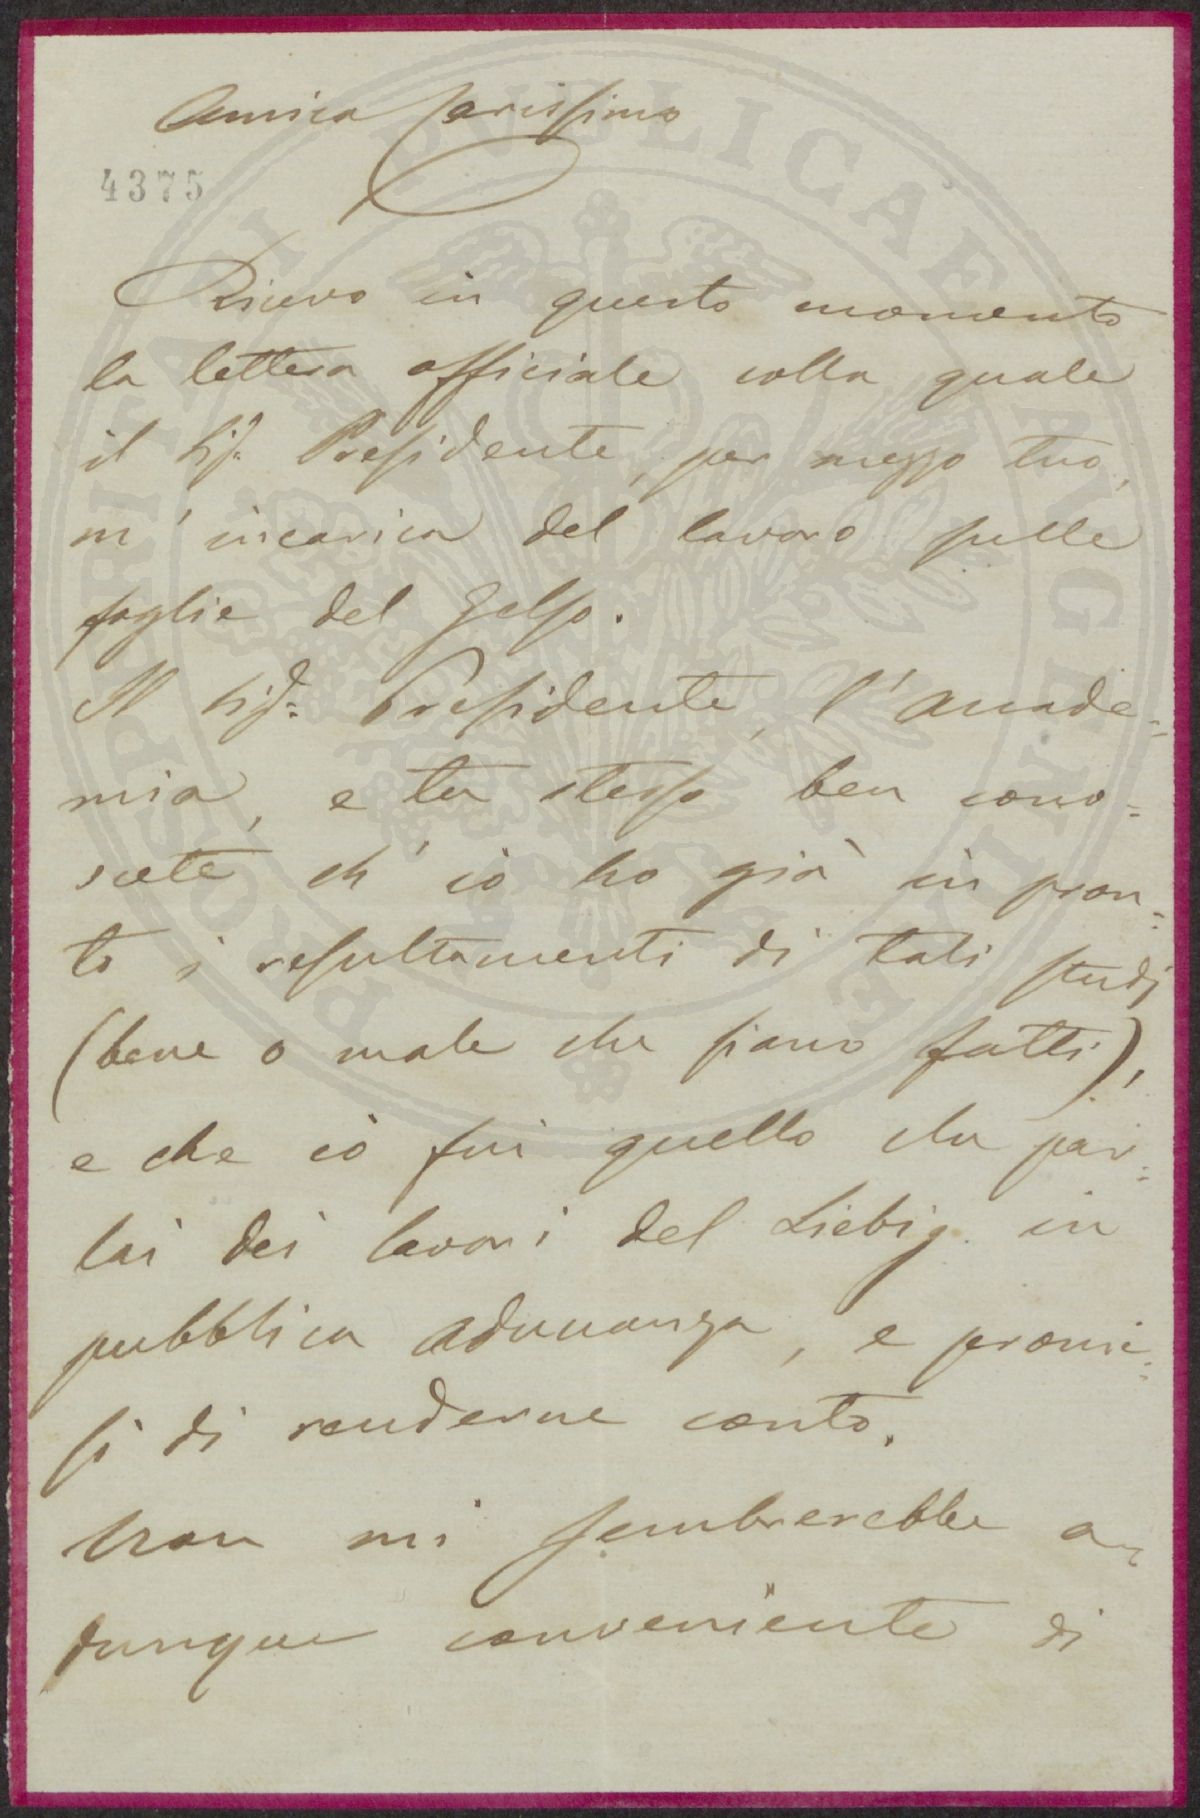 Amico Carissimo
4375
Ricevo in questo momento
la lettera officiale colla quale
il Sig.r Presidente, per mezzo tuo,
m'incarica del lavoro sulle
foglie del Gelso.
Il Sig.r Presidente, l'Accade=
mia, e tu stesso ben cono=
scete ch'io ho già in pron=
to i resultamenti di tali studj
(bene o male che siano fatti),
e che io fui quello che par=
lai dei lavori del Liebig in
pubblica adunanza, e promi=
si di renderne conto.
Non mi sembrerebbe a=
dunque conveniente di
PROSPERITATI PVBLICAE AVGENDAE